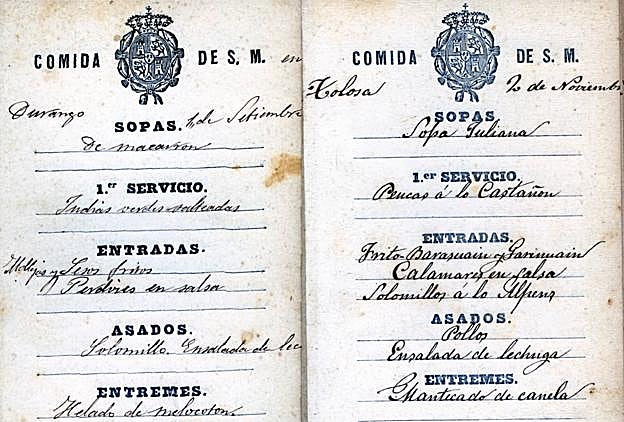 COMIDA DE S. M. en
Durango 1º de Setiembre
SOPAS.
De macarron
1.er SERVICIO.
Indias verdes salteadas
ENTRADAS.
Mollejas y Sesos fritos
Perdices en salsa
ASADOS.
Solomillo. Ensalada de lec
ENTREMES.
Helado de melocoton
COMIDA DE S. M.
Tolosa 2 de Noviembr
SOPAS
Sopa Juliana
1.er SERVICIO.
á lo Castañon
ENTRADAS.
Frito-Barasuain y Garinuain
Calamares en salsa
Solomillos á lo Alpens
ASADOS.
Pollos
Ensalada de lechuga
ENTREMES.
Mantecado de canela